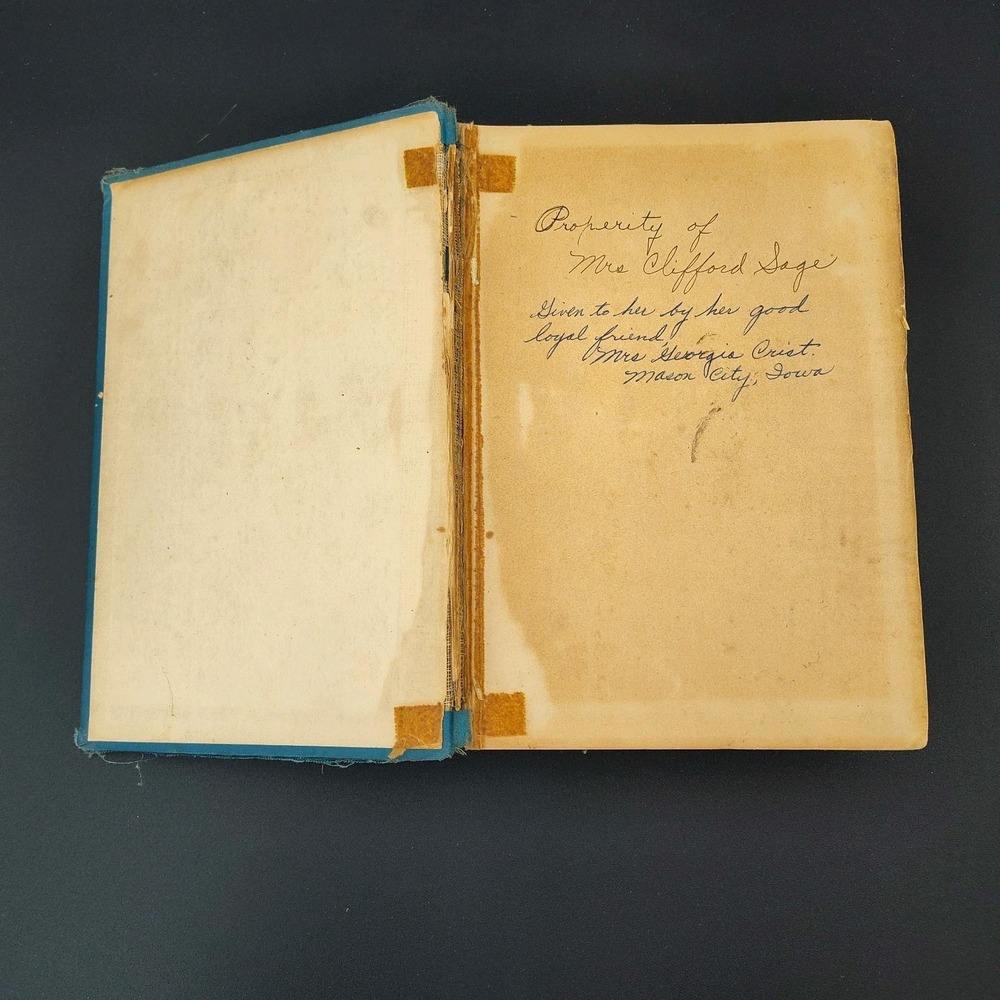 Properity of
Mrs Clifford Sage
Given to her by her good
loyal friend,
Mrs Georgia Crist.
Mason City, Iowa